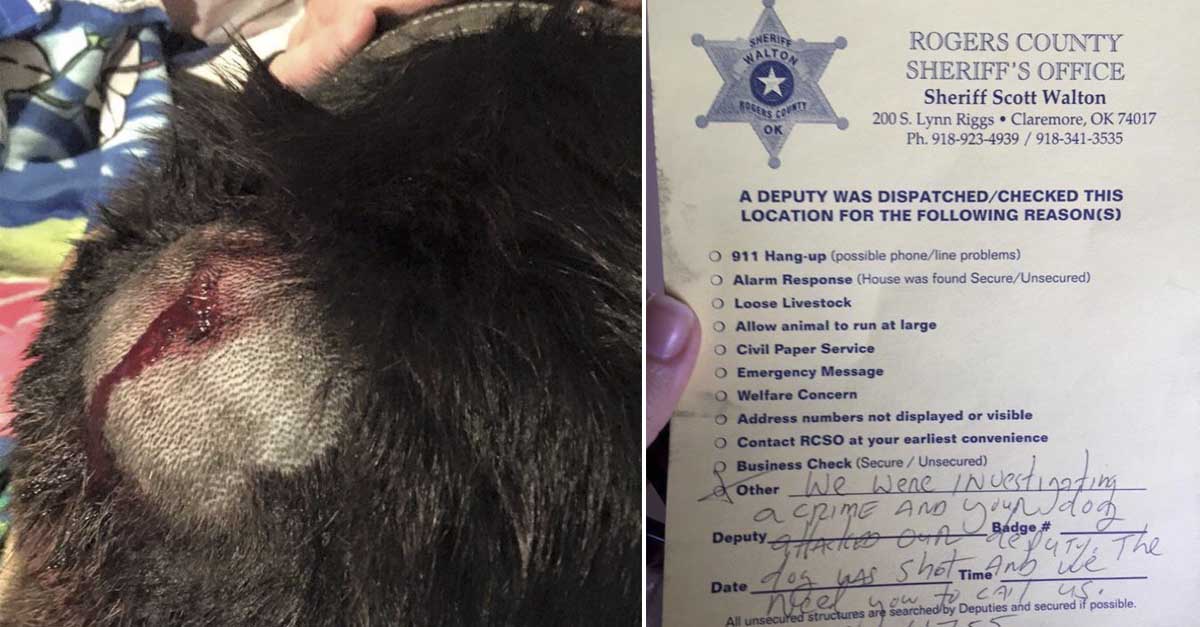 SHERIFF
WALTON
ROGERS COUNTY
OK
ROGERS COUNTY
SHERIFF'S OFFICE
Sheriff Scott Walton
200 S. Lynn Riggs • Claremore, OK 74017
Ph. 918-923-4939 / 918-341-3535
A DEPUTY WAS DISPATCHED/CHECKED THIS
LOCATION FOR THE FOLLOWING REASON(S)
911 Hang-up (possible phone/line problems)
Alarm Response (House was found Secure/Unsecured)
Loose Livestock
Allow animal to run at large
Civil Paper Service
Emergency Message
Welfare Concern
Address numbers not displayed or visible
Contact RCSO at your earliest convenience
Business Check (Secure / Unsecured)
Other We were investigating
a crime and your dog
Deputy Badge #
attacked our deputy. The
Date Time
dog was shot and we
need you to call us.
All unsecured structures are searched by Deputies and secured if possible.